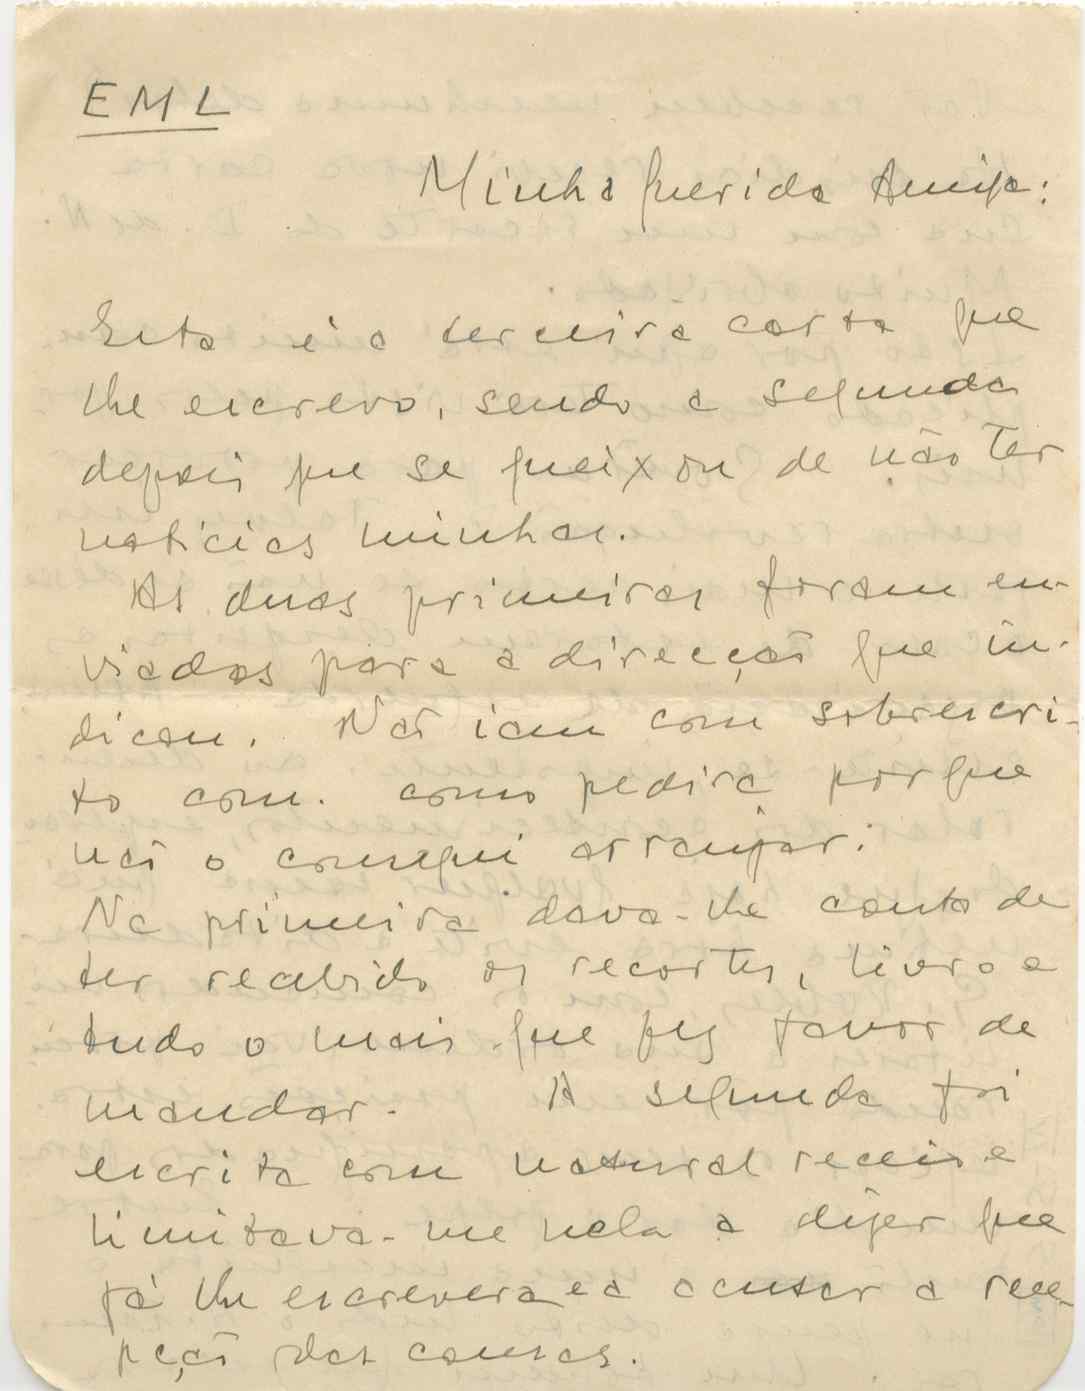 EML
Minha querida Amiga:
Esta é a terceira carta que
lhe escrevo, sendo a segunda
depois que se queixou de não ter
noticias minhas.
As duas primeiras foram en-
viadas para a direcção que in-
dicou. Não iam com sobrescri-
to com. como pedira porque
não o consegui arranjar.
Na primeira dava-lhe conta de
ter recebido os recortes, livro e
tudo o mais que fez favor de
mandar. A segunda foi
escrita com natural receio e
limitava-me nela a dizer que
já lhe escrevera e a acusar a rece-
pção das cousas.